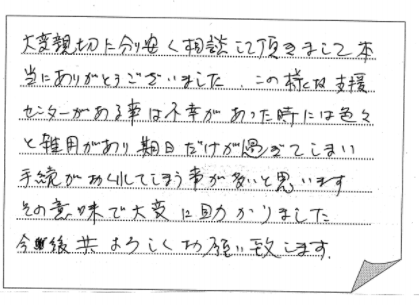 大変親切に分り安く相談して頂きまして本
当にありがとうございました。この様な支援
センターがある事は不幸があった時には色々
と雑用があり期日だけが過ぎてしまい
手続がおくれてしまう事が多いと思います
その意味で大変に助かりました
今後共よろしくお願い致します。